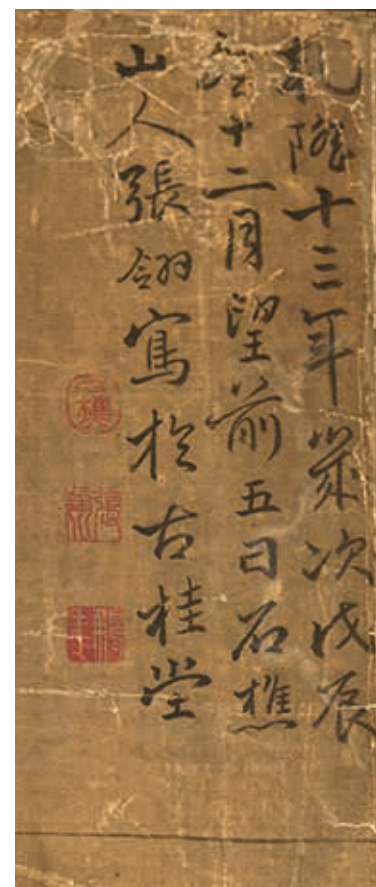 乹隆十三年歲次戊辰
十二月望前五日石樵
山人張翖寫於古桂堂
石樵